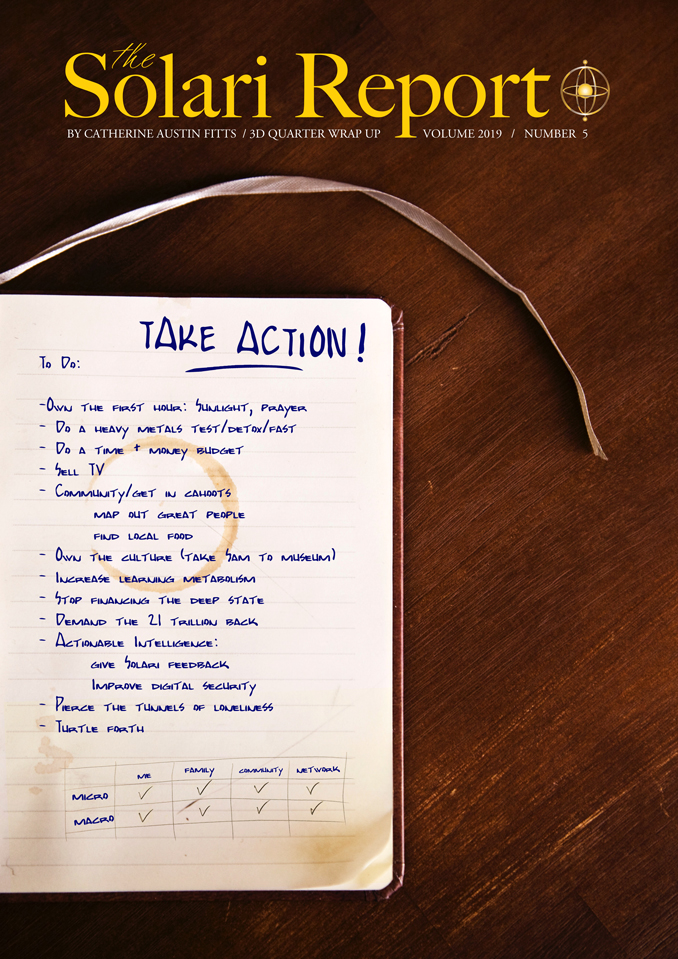 the
Solari Report
BY CATHERINE AUSTIN FITTS / 3D QUARTER WRAP UP VOLUME 2019 / NUMBER 5
TAKE ACTION!
To Do:
-Own the first hour: Sunlight, prayer
- Do a heavy metals test/detox/fast
- Do a time + money budget
- Sell TV
- Community/get in cahoots
map out great people
find local food
- Own the culture (take Sam to museum)
- Increase learning metabolism
- Stop financing the deep state
- Demand the 21 trillion back
- Actionable Intelligence:
give Solari feedback
Improve digital security
- Pierce the tunnels of loneliness
- Turtle forth
me family community network
micro ✓ ✓ ✓ ✓
macro ✓ ✓ ✓ ✓